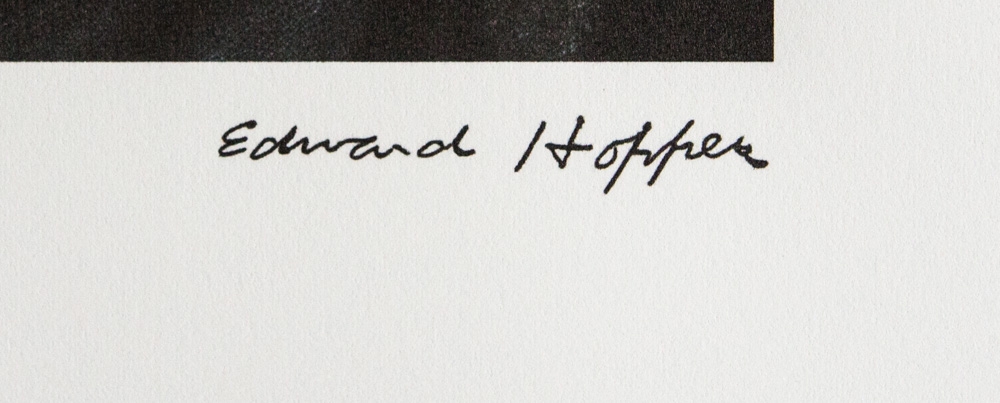 Edward Hopper